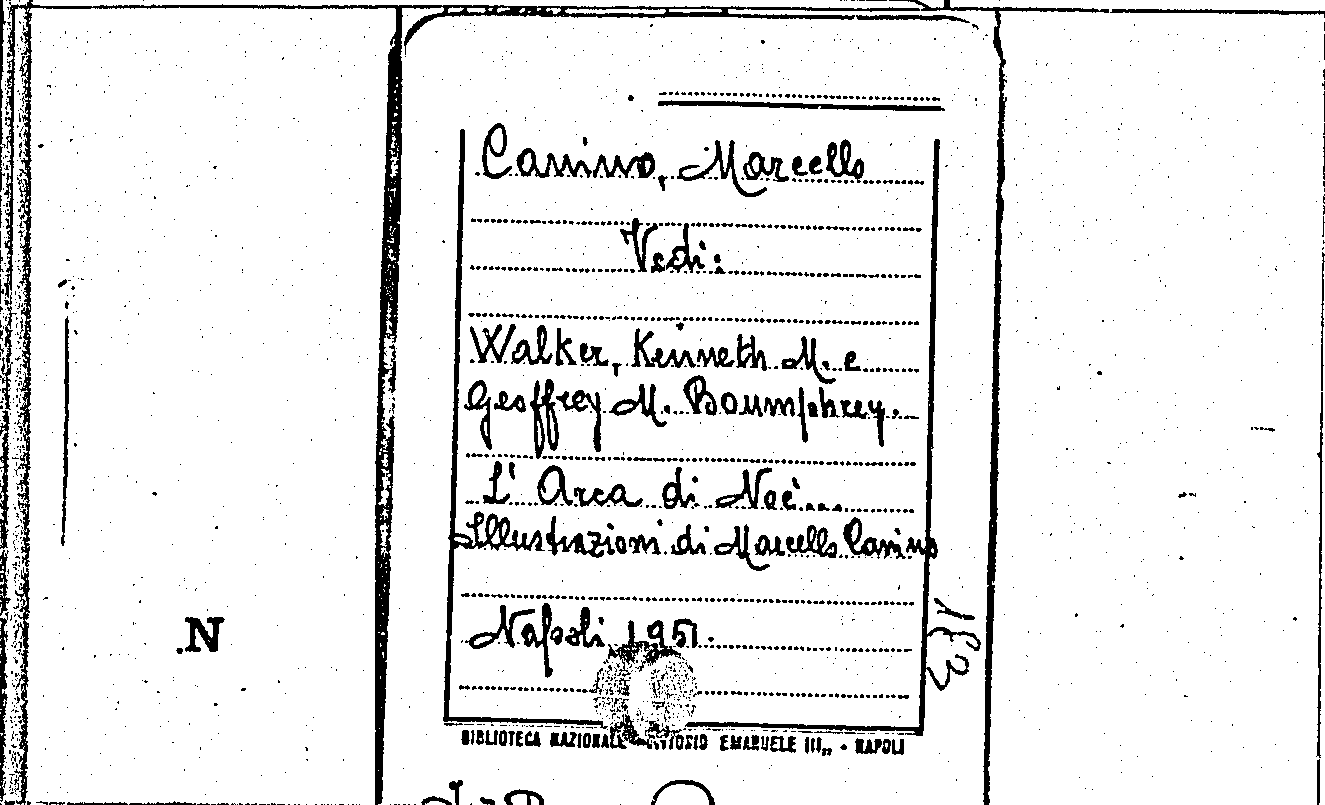 Canino, Marcello
Vedi:
Walker, Kenneth M. e
Geoffrey M. Boumphrey.
L' Arca di Noè...
Illustrazioni di Marcello Canino
Napoli 1951.
183
N
BIBLIOTECA NAZIONALE VITTORIO EMANUELE III„ - NAPOLI